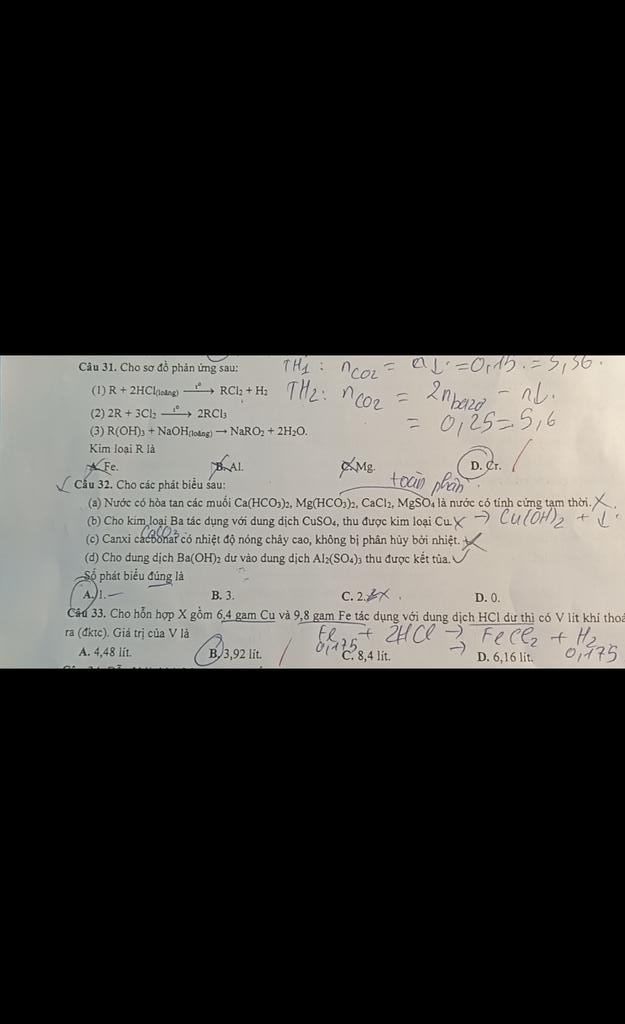 Câu 31. Cho sơ đồ phản ứng sau: TH1 : nCO2 = n↓ = 0,15 = 3,36.
(1) R + 2HCl(loãng) —t°→ RCl2 + H2 TH2: nCO2 = 2nbazo − n↓.
(2) 2R + 3Cl2 —t°→ 2RCl3 = 0,25 = 5,6
(3) R(OH)3 + NaOH(loãng) → NaRO2 + 2H2O.
Kim loại R là
A. Fe. B. Al. C. Mg. D. Cr.
Câu 32. Cho các phát biểu sau: toàn phần.
(a) Nước có hòa tan các muối Ca(HCO3)2, Mg(HCO3)2, CaCl2, MgSO4 là nước có tính cứng tạm thời. X
(b) Cho kim loại Ba tác dụng với dung dịch CuSO4, thu được kim loại Cu. X → Cu(OH)2 + ↓.
CaCO3
(c) Canxi cacbonat có nhiệt độ nóng chảy cao, không bị phân hủy bởi nhiệt. X
(d) Cho dung dịch Ba(OH)2 dư vào dung dịch Al2(SO4)3 thu được kết tủa. ✓
Số phát biểu đúng là
A. 1. B. 3. C. 2. D. 0.
Câu 33. Cho hỗn hợp X gồm 6,4 gam Cu và 9,8 gam Fe tác dụng với dung dịch HCl dư thì có V lít khí thoá
ra (đktc). Giá trị của V là Fe + 2HCl → FeCl2 + H2
0,175 → 0,175
A. 4,48 lít. B. 3,92 lít. C. 8,4 lít. D. 6,16 lít.